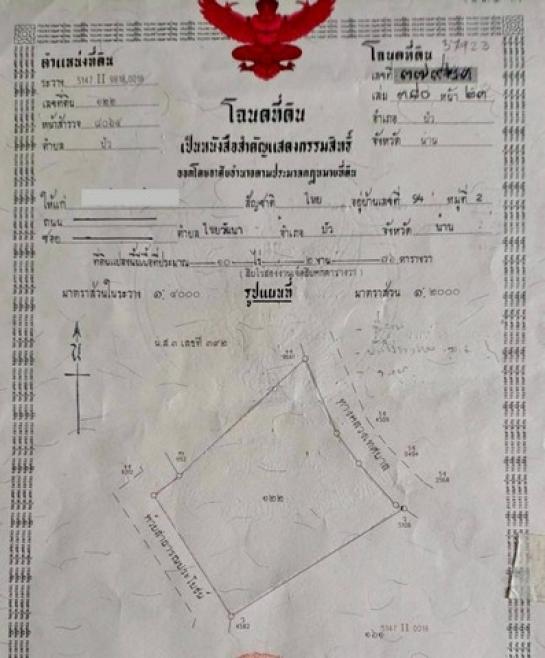 37923
ตำแหน่งที่ดิน
ระวาง 5147 II 9818,0018
เลขที่ดิน ๑๒๒
หน้าสำรวจ
ตำบล บัว
โฉนดที่ดิน
เลขที่ ๓๗๙๒๓
เล่ม ๓๘๐ หน้า ๒๓
อำเภอ บัว
จังหวัด น่าน
โฉนดที่ดิน
เป็นหนังสือสำคัญแสดงกรรมสิทธิ์
ออกโดยอาศัยอำนาจตามประมวลกฎหมายที่ดิน
ให้แก่ สัญชาติ ไทย อยู่บ้านเลขที่ 94 หมู่ที่ 2
ถนน
ซอย ตำบล ไชยวัฒนา อำเภอ บัว จังหวัด น่าน
ที่ดินแปลงนี้มีเนื้อที่ประมาณ ๑๐ ไร่ ๒ งาน ๗๖ ตารางวา
( สิบไร่สองงานเจ็ดสิบหกตารางวา )
มาตราส่วนในระวาง ๑: ๔๐๐๐
รูปแผนที่
มาตราส่วน ๑: ๒๐๐๐
น
น.ส.๓ เลขที่ ๓๙๒
ทางหลวงเทศบาล
๑๒๒
ห้วยสาธารณประโยชน์
5147 II 0018